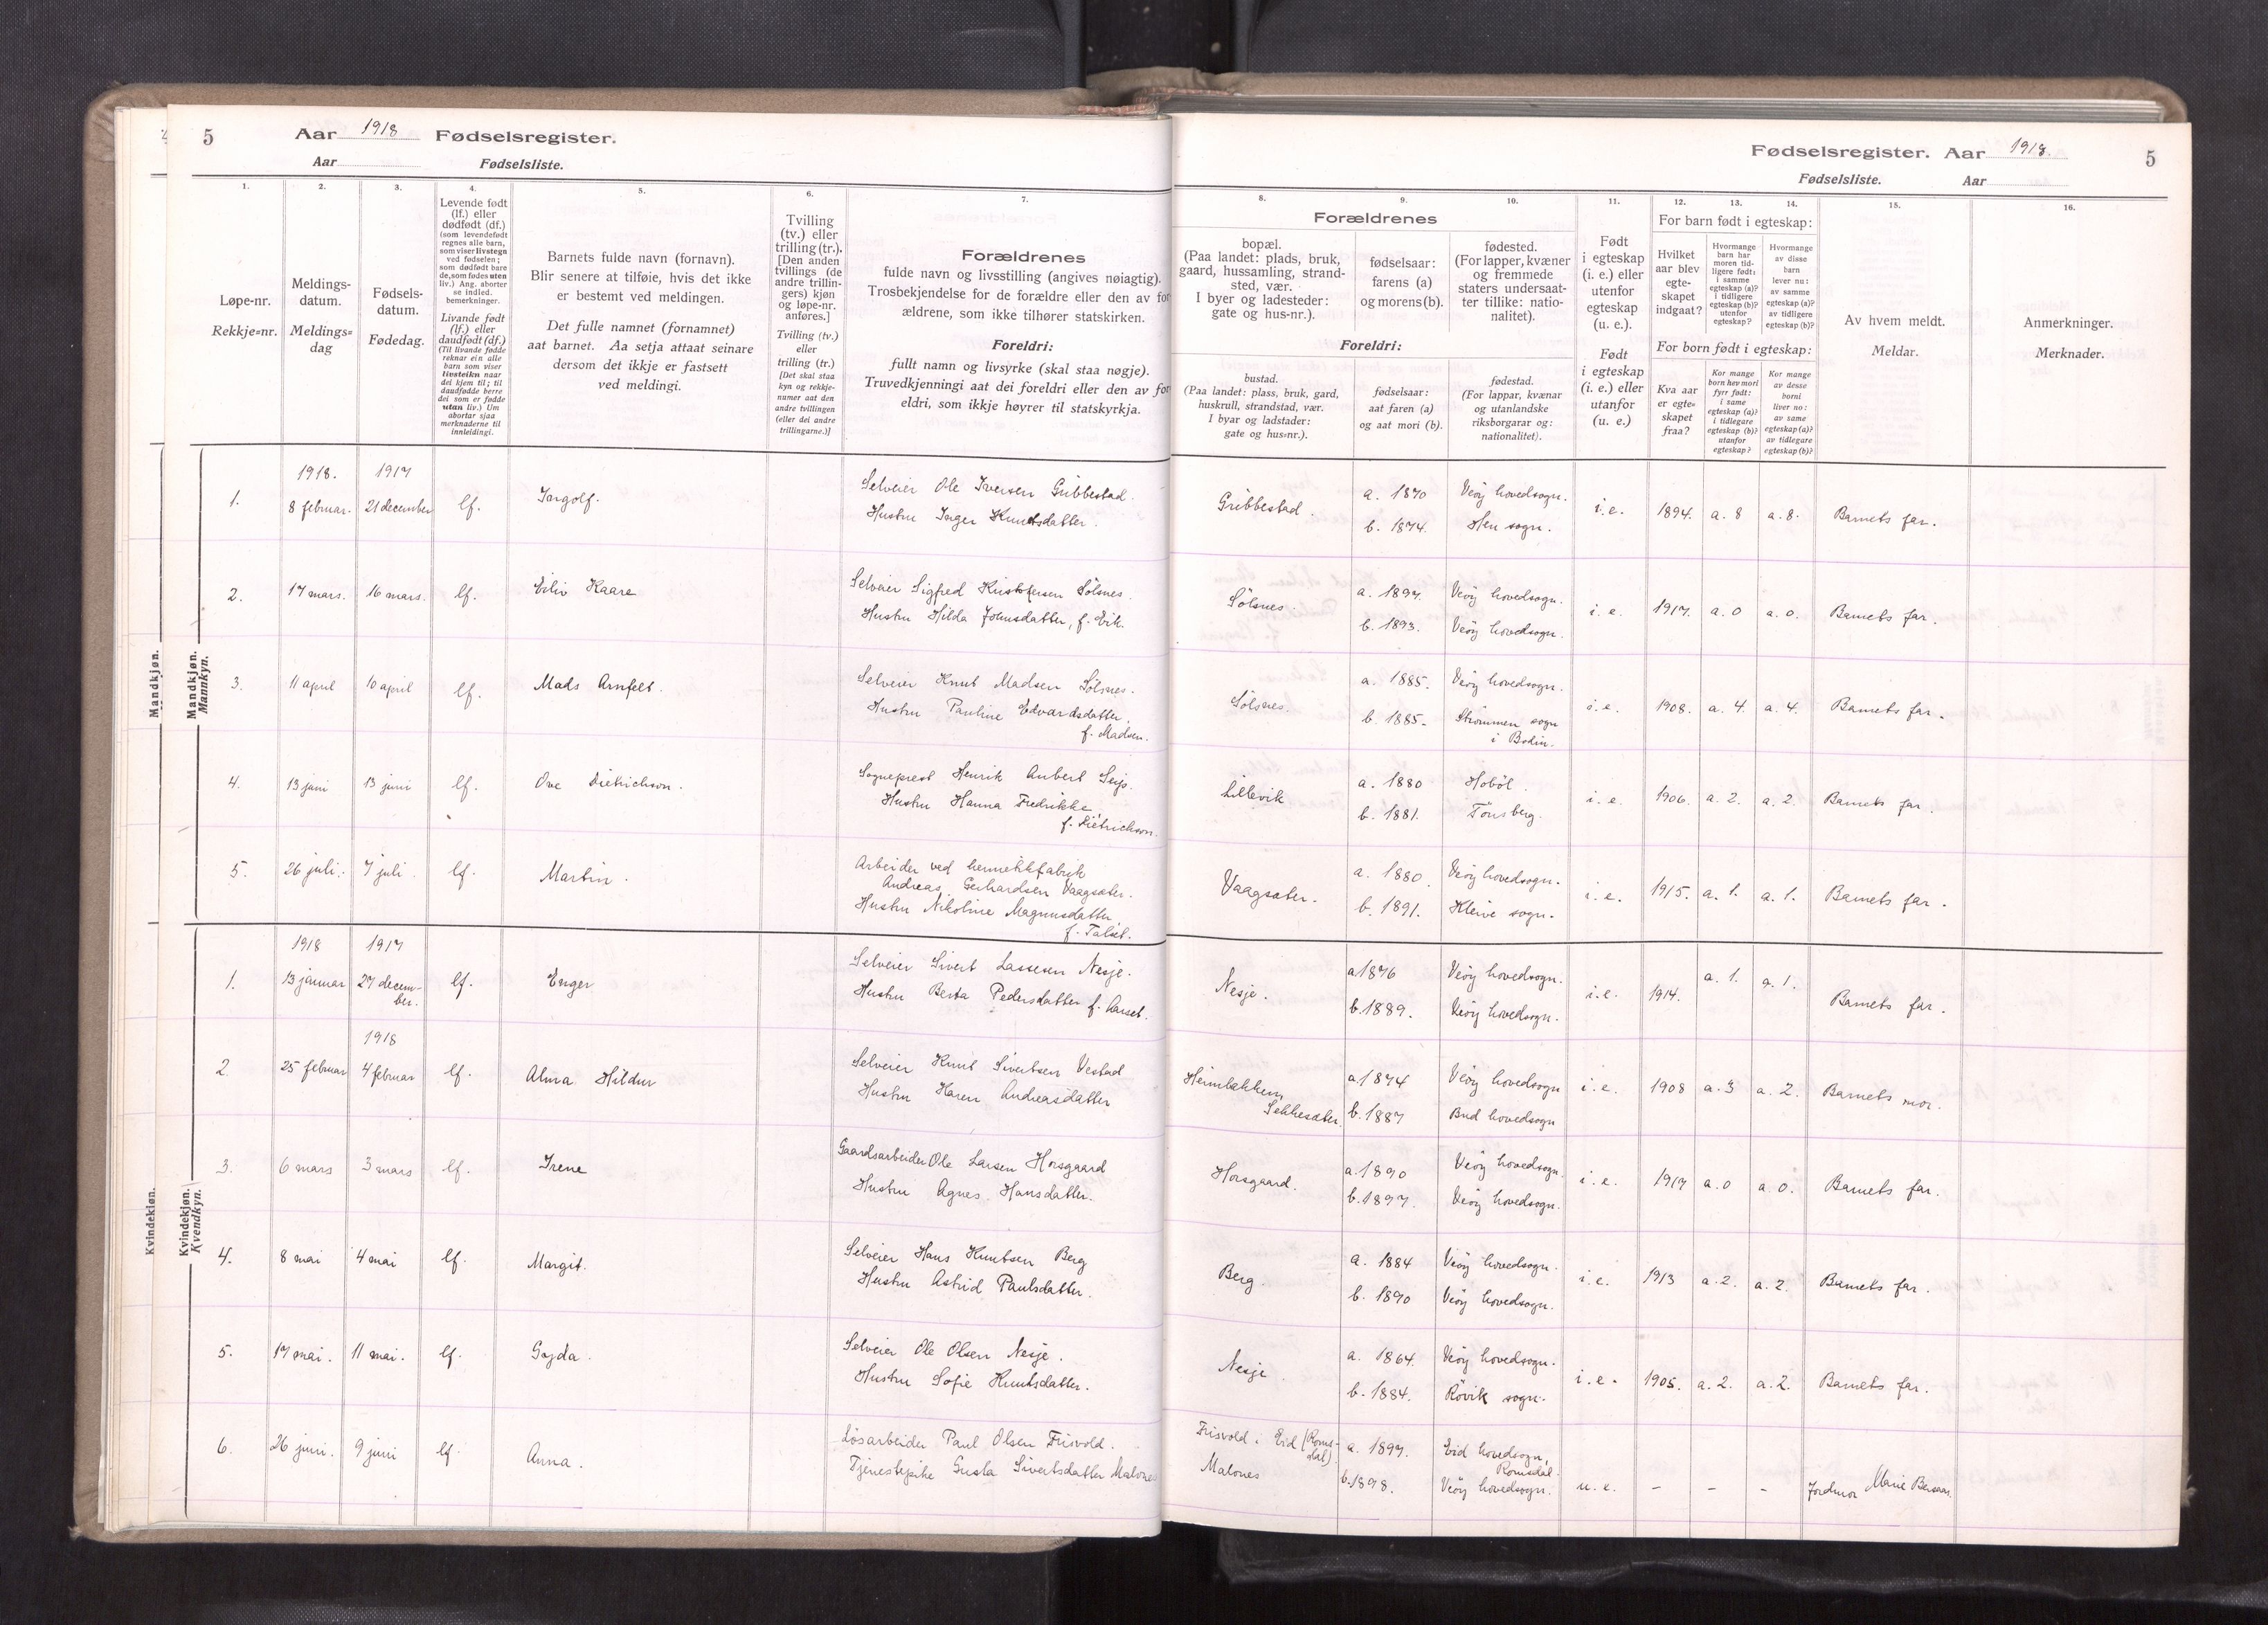 5 Aar 1918 Fødselsregister.
Aar Fødselsliste.
Fødselsregister. Aar 1918. 5
Fødselsliste. Aar
1. 2. 3. 4. 5. 6. 7. 8. 9. 10. 11. 12. 13. 14. 15. 16.
Løpe-nr.
Rekkje=nr.
Meldings-
datum.
Meldings=
dag
Fødsels-
datum.
Fødedag.
Levende født
(lf.) eller
dødfødt (df.)
(som levendefødt
regnes alle barn,
som viser livstegn
ved fødselen;
som dødfødt bare
de, som fødes uten
liv.) Ang. aborter
se indled.
bemerkninger.
Livande født
(lf.) eller
daudfødt (df.)
(Til livande fødde
reknar ein alle
barn som viser
livsteikn naar
dei kjem til; til
daudfødde berre
dei som er fødde
utan liv.) Um
abortar sjaa
merknaderne til
innleidingi.
Barnets fulde navn (fornavn).
Blir senere at tilføie, hvis det ikke
er bestemt ved meldingen.
Det fulle namnet (fornamnet)
aat barnet. Aa setja attaat seinare
dersom det ikkje er fastsett
ved meldingi.
Tvilling
(tv.) eller
trilling (tr.).
[Den anden
tvillings (de
andre trillin-
gers) kjøn
og løpe-nr.
anføres.]
Tvilling (tv.)
eller
trilling (tr.)
[Det skal staa
kyn og rekkje-
numer aat den
andre tvillingen
(eller dei andre
trillingarne.)]
Forældrenes
fulde navn og livsstilling (angives nøiagtig).
Trosbekjendelse for de forældre eller den av for
ældrene, som ikke tilhører statskirken.
Foreldri:
fullt namn og livsyrke (skal staa nøgje).
Truvedkjenningi aat dei foreldri eller den av for
eldri, som ikkje høyrer til statskyrkja.
Forældrenes
bopæl.
(Paa landet: plads, bruk,
gaard, hussamling, strand-
sted, vær.
I byer og ladesteder:
gate og hus-nr.).
fødselsaar:
farens (a)
og morens (b).
fødested.
(For lapper, kvæner
og fremmede
staters undersaat-
ter tillike: natio-
nalitet).
Foreldri:
bustad.
(Paa landet: plass, bruk, gard,
huskrull, strandstad, vær.
I byar og ladstader:
gate og hus=nr.).
fødselsaar:
aat faren (a)
og aat mori (b).
fødestad.
(For lappar, kvænar
og utanlandske
riksborgarar og:
nationalitet).
Født
i egteskap
(i. e.) eller
utenfor
egteskap
(u. e.).
Født
i egteskap
(i. e.) eller
utanfor
(u. e.)
For barn født i egteskap:
Hvilket
aar blev
egte-
skapet
indgaat?
Hvormange
barn har
moren tid-
ligere født:
i samme
egteskap (a)?
i tidligere
egteskap (b)?
utenfor
egteskap?
Hvormange
av disse
barn
lever nu:
av samme
egteskap (a)?
av tidligere
egteskap (b)?
For born født i egteskap:
Kva aar
er egte=
skapet
fraa?
Kor mange
born hev mori
fyrr født:
i same
egteskap (a)?
i tidlegare
egteskap (b)?
utanfor
egteskap?
Kor mange
av desse
borni
liver no:
av same
egteskap (a)?
av tidlegare
egteskap (b)?
Av hvem meldt.
Meldar.
Anmerkninger.
Merknader.
Mandkjøn.
Mandkjøn.
Mannkyn.
1918. 1917
1. 8 februar. 21 december lf. Ingolf.
Selveier Ole Iversen Gribbestad.
Hustru Inger Knutsdatter.
Gribbestad. a. 1870 Veøy hovedsogn. i. e. 1894. a. 8 a. 8. Barnets far.
b. 1874. Hen sogn.
2. 17 mars. 16 mars. lf. Eiliv Kaare
Selveier Sigfred Kristofersen Sölsnes.
Hustru Hilda Johnsdatter, f. Eik.
Sölsnes. a. 1897. Veöy hovedsogn. i. e. 1917. a. 0 a. 0. Barnets far.
b. 1893. Veöy hovedsogn.
3. 11 april 10 april lf. Mads Arnfelt.
Selveier Knut Madsen Sölsnes.
Hustru Pauline Edvardsdatter,
f. Madsen.
Sölsnes. a. 1885. Veöy hovedsogn. i. e. 1908. a. 4. a. 4. Barnets far.
b. 1885. Strömmen sogn
i Bodin.
4. 13 juni 13 juni lf. Ove Dietrichson.
Sogneprest Henrik Aubert Seip.
Hustru Hanna Fredrikke
f. Dietrichson.
Lillevik a. 1880 Hobøl. i. e. 1906. a. 2. a. 2. Barnets far.
b. 1881. Tönsberg.
5. 26 juli. 7 juli. lf. Martin.
Arbeider ved hermetikfabrik
Andreas Gerhardsen Vaagsæter.
Hustru Nikoline Magnusdatter,
f. Talset.
Vaagsæter. a. 1880. Veöy hovedsogn. i. e. 1915. a. 1. a. 1. Barnets far.
b. 1891. Kleive sogn.
Kvindekjøn.
Kvindekjøn.
Kvendkyn.
1918 1917
1. 13 januar 27 decem-
ber. lf. Enger
Selveier Sivert Lassesen Nesje.
Hustru Berta Pedersdatter f. Aarset.
Nesje. a 1876 Veöy hovedsogn. i. e. 1914. a. 1. a. 1. Barnets far.
b. 1889. Veöy hovedsogn.
1918
2. 25 februar 4 februar lf. Alma Hildur
Selveier Knut Sivertsen Vestad
Hustru Karen Andreasdatter
Heimbakken,
Sekkesæter. a. 1874 Veöy hovedsogn i. e. 1908 a. 3 a. 2. Barnets mor.
b. 1887 Bud hovedsogn
3. 6 mars 3 mars lf. Irene
Gaardsarbeider Ole Larsen Horsgaard
Hustru Agnes Hansdatter.
Horsgaard. a. 1890 Veöy hovedsogn. i. e. 1917 a. 0 a. 0. Barnets far.
b. 1897. Veöy hovedsogn.
4. 8 mai 4 mai lf. Margit.
Selveier Hans Knutsen Berg
Hustru Astrid Paulsdatter.
Berg. a. 1884 Veöy hovedsogn. i. e. 1913 a. 2. a. 2. Barnets far.
b. 1890 Veöy hovedsogn.
5. 17 mai. 11 mai. lf. Gyda.
Selveier Ole Olsen Nesje.
Hustru Sofie Knutsdatter.
Nesje. a. 1864. Veöy hovedsogn. i. e. 1905. a. 2. a. 2. Barnets far.
b. 1884. Rövik sogn.
6. 26 juni. 9 juni lf. Anna.
Lösarbeider Paul Olsen Frisvold.
Tjenestepike Gusta Sivertsdatter Malones
Frisvold i Eid (Roms-
dal). a. 1897. Eid hovedsogn,
Romsdal.
Malones b. 1898. Veöy hovedsogn. u. e. – – – Jordmor Marie